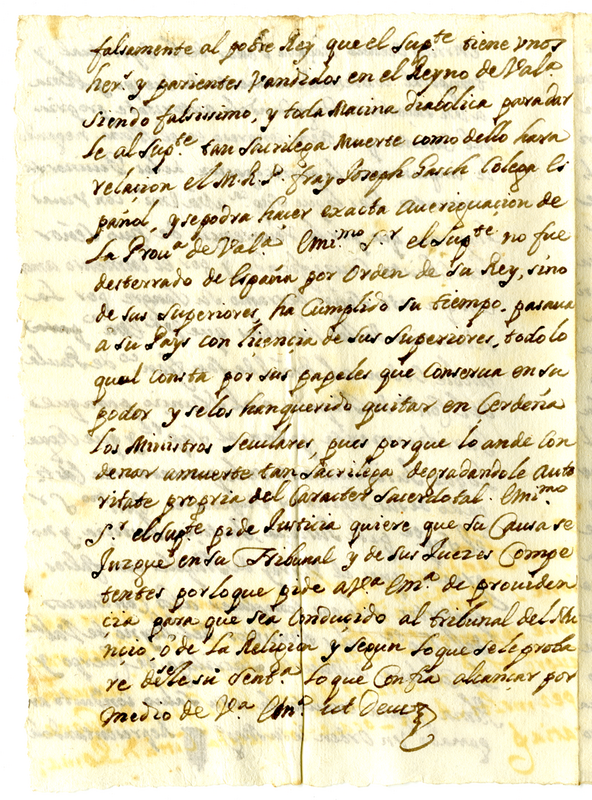 falsamente al pobre Rey que el Supte tiene vnos
hers y parientes Vandidos en el Reyno de Vala
siendo falsissimo, y toda Macina diabolica para dar
le al Supte tan Sacrilega Muerte como dello hara
relacion el M.R.P. fray Joseph Gasch Colega Es
pañol, y se podra hacer exacta Aueriguacion de
La Proua de Vala Emimo Sr el Supte no fue
desterrado de España por Orden de su Rey, sino
de sus Superiores, ha Cumplido su tiempo, pasaua
a su Pays con licencia de sus Superiores, todo lo
qual Consta por sus papeles que Conserua en su
poder y se los han querido quitar en Cerdeña
Los Ministros Seculares, pues porque lo an de Con
denar a muerte tan Sacrilega degradandole Auto
ritate propria del Caracter Sacerdotal. Emimo
Sr el Supte pide Justicia quiere que su Causa se
Juzgue en su Tribunal y de sus Juezes Compe
tentes por lo que pide a Va Ema de prouiden
cia para que sea Conducido al tribunal del Nu
ncio, o de La Religion y segun lo que se le proba
re desele su Senta lo que Confia alcançar por
medio de Va Ema ut Deus